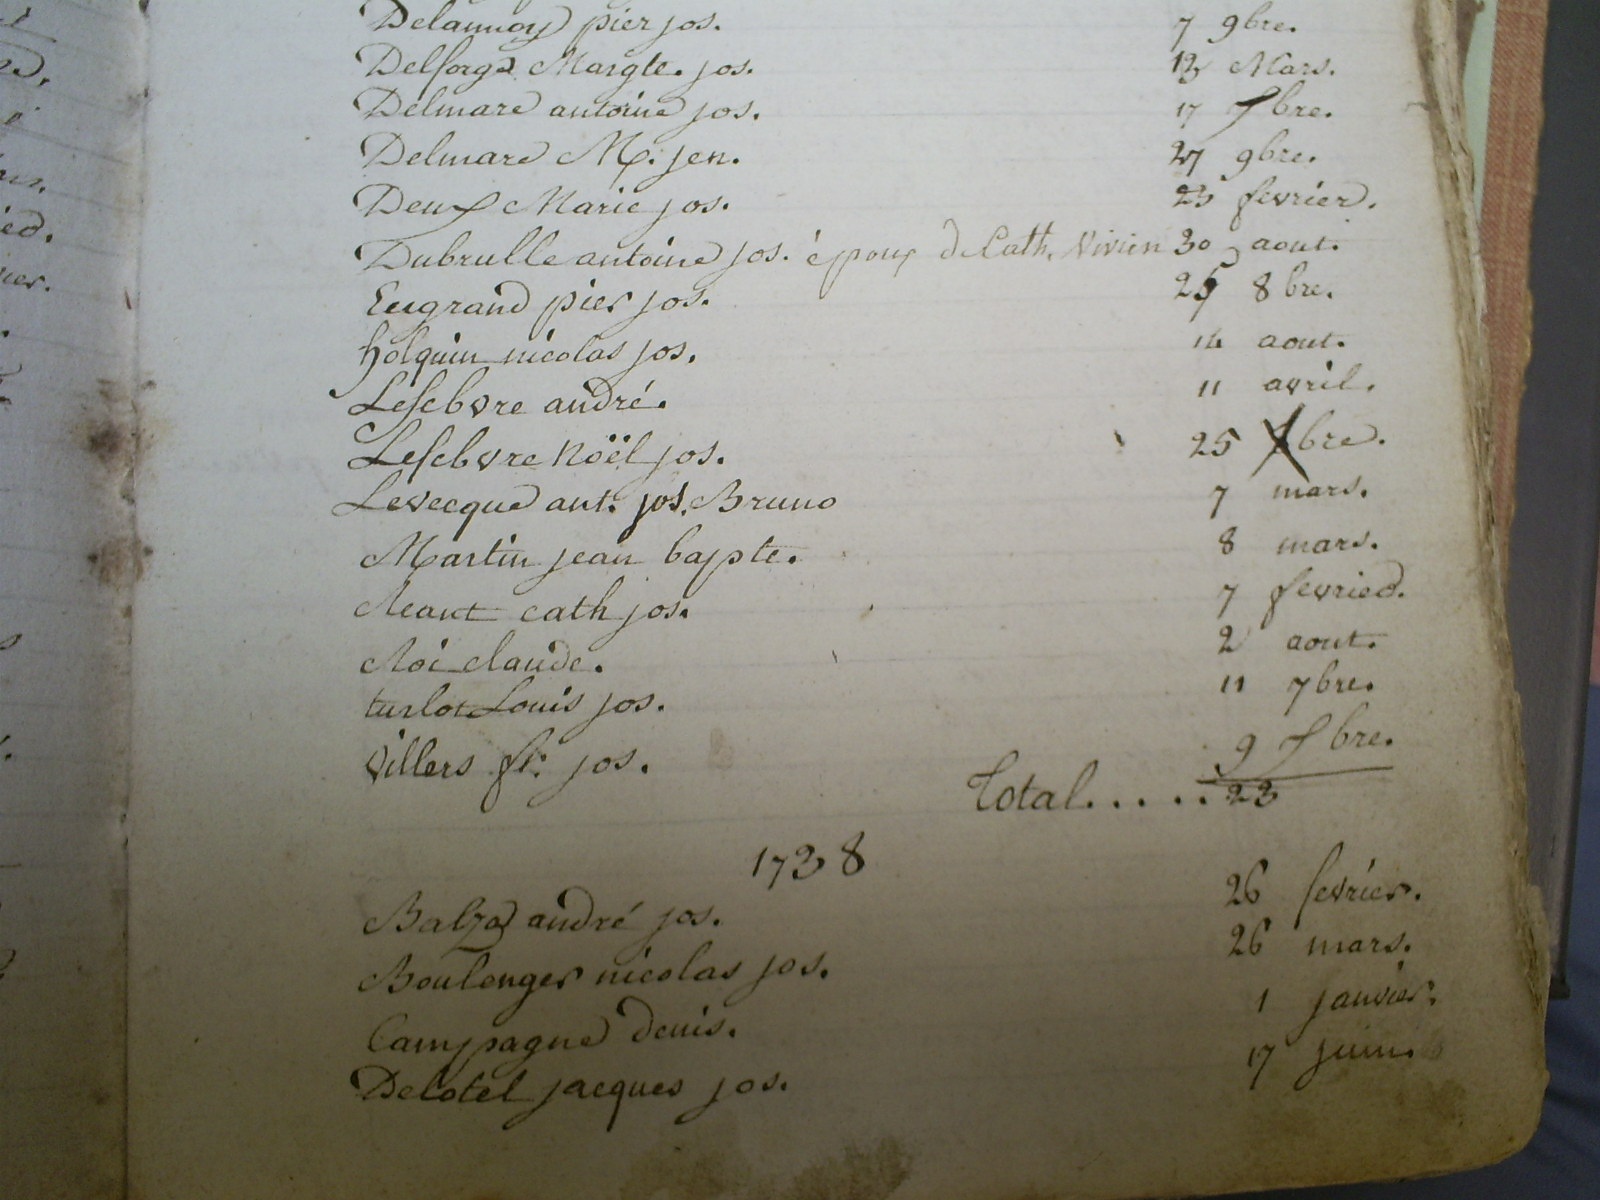 Delannoy pier jos. 7 9bre.
Delforge Margte. jos. 12 Mars.
Delmare antoine jos. 17 Xbre.
Delmare M. jen. 27 9bre.
Deux Marie jos. 23 fevrier.
Dubrulle antoine jos. époux de Cath. Vivien 30 aout.
Eugrand pier jos. 25 8bre.
holquin nicolas jos. 14 aout.
Lefebvre andré. 11 avril.
Lefebvre Noël jos. 25 Xbre.
Levecque ant. jos. Bruno 7 mars.
Martin jean bapte. 8 mars.
cath jos. 7 fevrier.
claude. 2 aout.
turlot Louis jos. 11 7bre.
villers fr: jos. 9 Xbre.
Total..... 23
1738
Balza andré jos. 26 fevrier.
Boulenger nicolas jos. 26 mars.
Campagne denis. 1 janvier.
Delotel jacques jos. 17 juin.